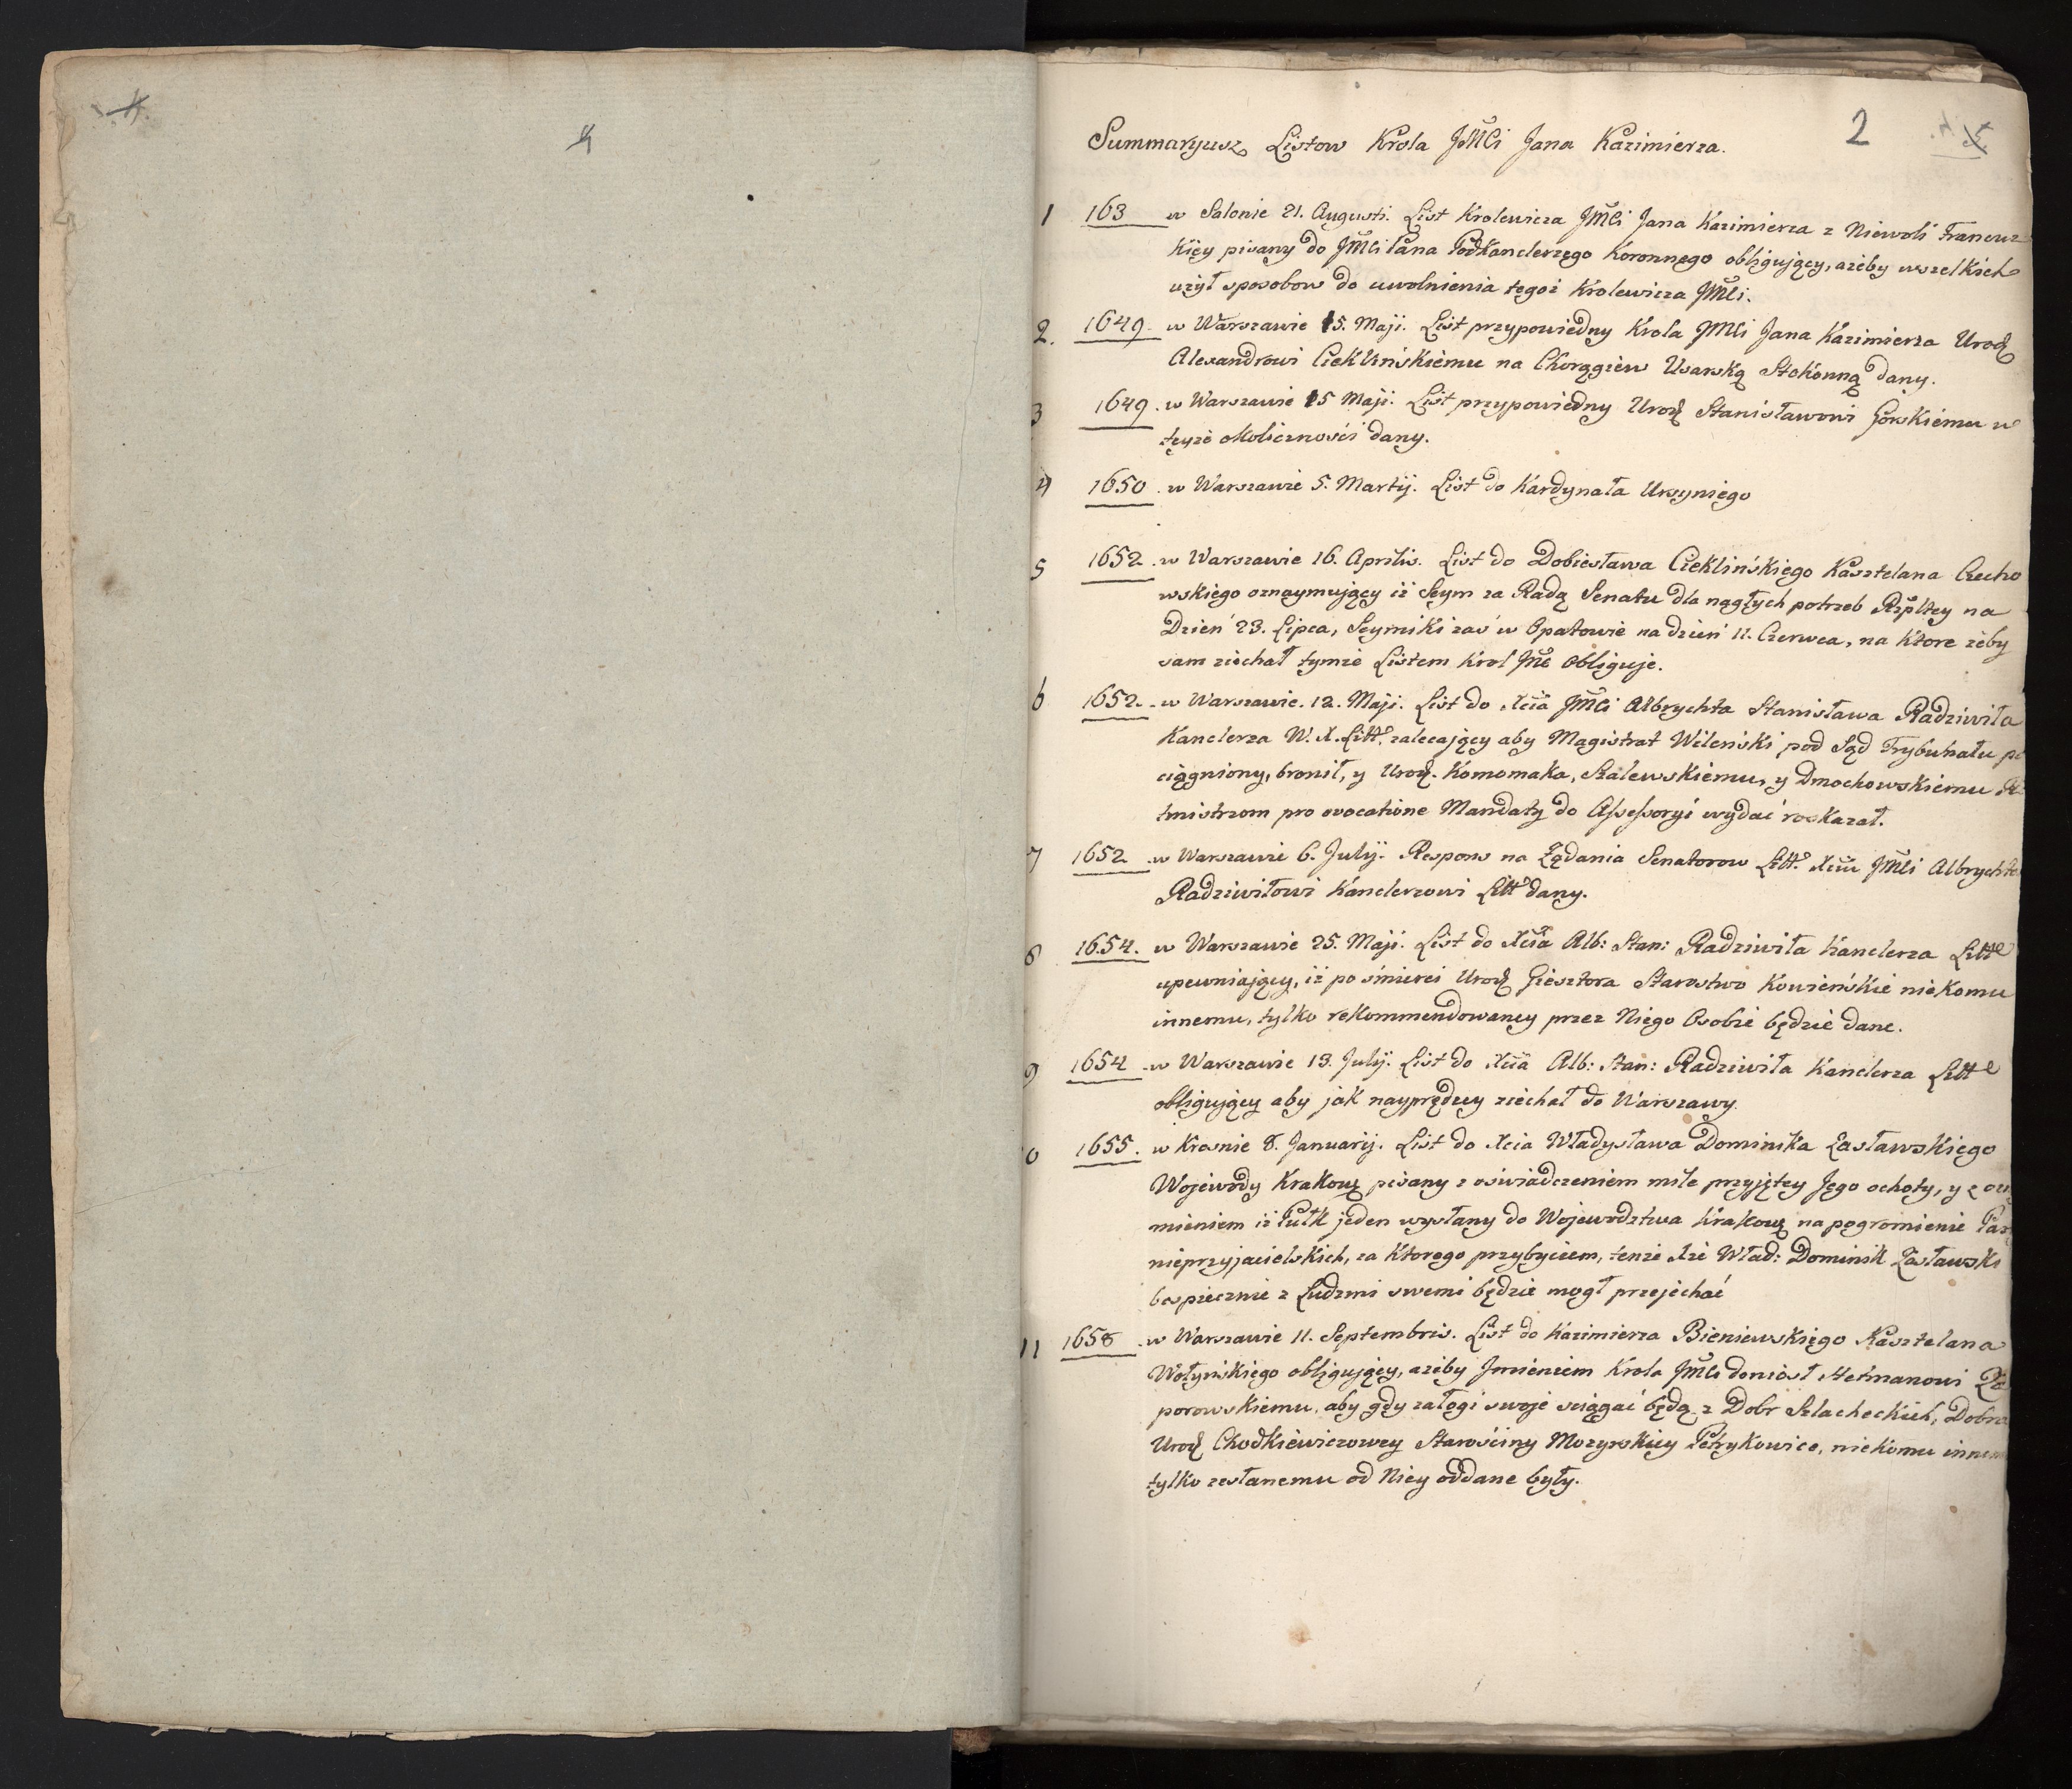 2
Summaryusz Listow Krola JMCi Jana Kazimierza.
1 163 w Salonie 21. Augusti. List Krolewicza JMCi Jana Kazimierza z Niewoli Francuz
kięy pisany do JMCi Pana Podkanclerzego Koronnego obligujący, ażeby wszelkich
użył sposobow do uwolnienia tegoż Krolewicza JMCi.
2. 1649. w Warszawie 15. Maji. List przypowiedny Krola JMCi Jana Kazimierza Urodz
Alexandrowi Cieklińskiemu na Chorągiew Usarską Stokonną dany.
3 1649. w Warszawie 15 Maji. List przypowiedny Urodz Stanisławowi Gorskiemu w
teyże okolicznosci dany.
4 1650. w Warszawie 5. Martij. List do Kardynała Ursyniego
5 1652. w Warszawie 16. Aprilis. List do Dobiesława Cieklińskiego Kasztelana Czecho
wskiego oznaymujący iż Seym za Radą Senatu dla nagłych potrzeb Rzpltey na
Dzień 23. Lipca, Seymiki zaś w Opatowie na dzień 11. Czerwca, na ktore żeby
sam ziechał tymże Listem Krol JMc obliguje.
6 1652. w Warszawie. 12. Maji. List do Xcia JMCi Albrychta Stanisława Radziwiła
Kanclerza W. X. Litt. zalecający aby Magistrat Wileński pod Sąd Trybunału
ciągniony, bronił, y Urodz. Komomaka, Szalewskiemu, y Dmochowskiemu
tmistrzom pro evocatione Mandaty do Assessoryi wydać roskazał.
7 1652 w Warszawie 6. July. Respons na Żądania Senatorow Litt. Xciu JMCi Albrychto
Radziwiłowi Kanclerzowi Litt dany.
8 1654. w Warszawie 25. Maji. List do Xcia Alb: Stan: Radziwiła Kanclerza Litt
upewniający, iż po śmierci Urodz Giesztora Starostwo Kowieńskie niekomu
innemu, tylko rekommendowaney przez Niego Osobie będzie dane.
9 1654 w Warszawie 13. July. List do Xcia Alb: Stan: Radziwiła Kanclerza Litt
obligujący aby jak nayprędzey ziechał do Warszawy.
0 1655. w Krosnie 8. Januarij. List do Xcia Władysława Dominika Zasławskiego
Wojewody Krakow pisany z oswiadczeniem mile przyjętey Jego ochoty, y z
mieniem iż Pułk jeden wysłany do Wojewodztwa Krakow na pogromienie
nieprzyjacielskich, za ktorego przybyciem, tenże Xże Wład: Dominik Zasławski
bespiecznie z Ludzmi swemi będzie mogł przejechać
11 1658 w Warszawie 11. Septembris. List do Kazimierza Bieniewskiego Kasztelana
Wołyńskiego obligujący, ażeby Jmieniem Krola JMCi doniosł Hetmanowi Za
porowskiemu, aby gdy załogi swoje sciągać będą z Dobr Szlacheckich, Dobra
Urodz Chodkiewiczowey Starościny Mozyrskiey Petrykowice, niekomu innem
tylko zesłanemu od Niey oddane były.